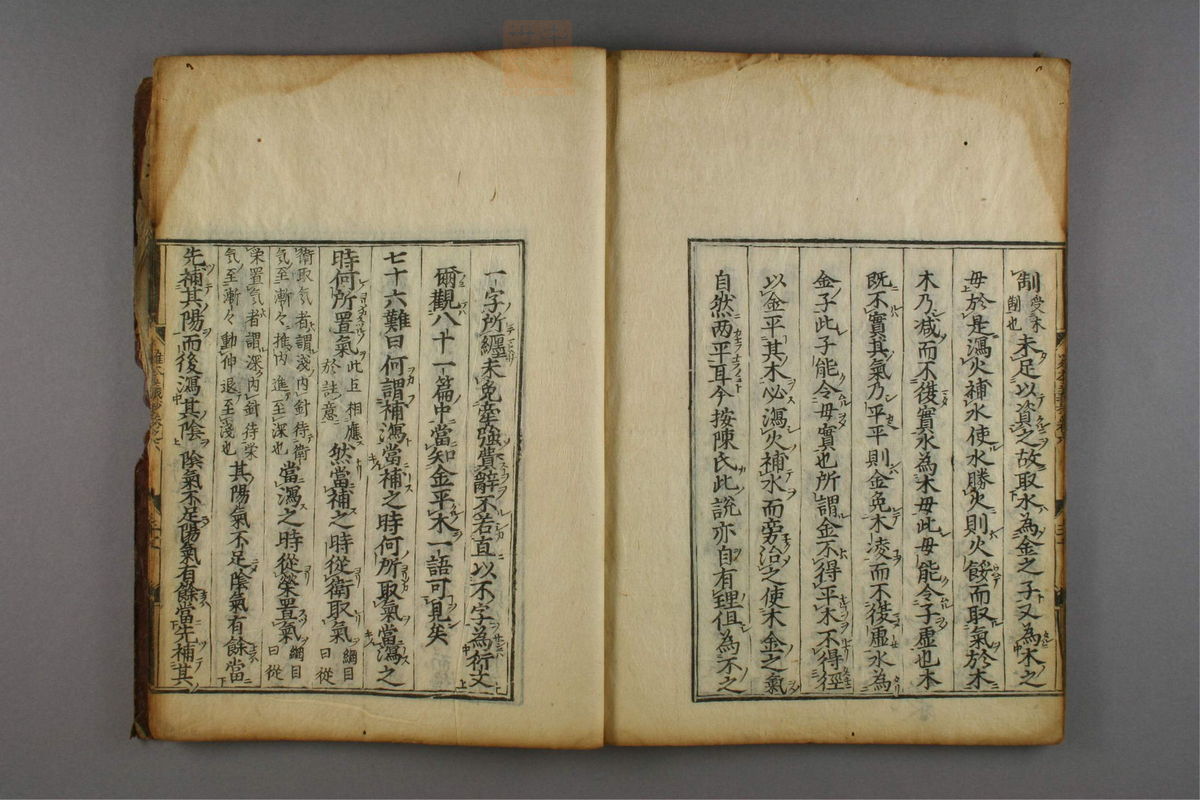 制受木制也未足以資之故取水為金之子又為木之
母於是瀉火補水使水勝火則火餒而取氣於木
木乃减而不復實水為木母此母能令子虚也木
既不實其氣乃平平則金免木凌而不復虚水為
金子此子能令母實也所謂金不得平木不得徑
以金平其木必瀉火補水而旁治之使木金之氣
自然两平耳今按陳氏此說亦自有理但為不之
一字所纏未免牽強費辭不若直以不字為衍文
爾觀八十一篇中當知金平木一語可見矣
七十六難曰何謂補瀉當補之時何所取氣當瀉之
時何所置氣此巨相應於註意然當補之時從衛取氣綱目曰從
衛取気者謂淺内針待衛気至漸々推内進至深也當瀉之時從榮置氣綱目曰從
栄置気者謂深内針待栄気至漸々動伸退至淺也其陽氣不足陰氣有餘當
先補其陽而後瀉其陰陰氣不足陽氣有餘當先補其